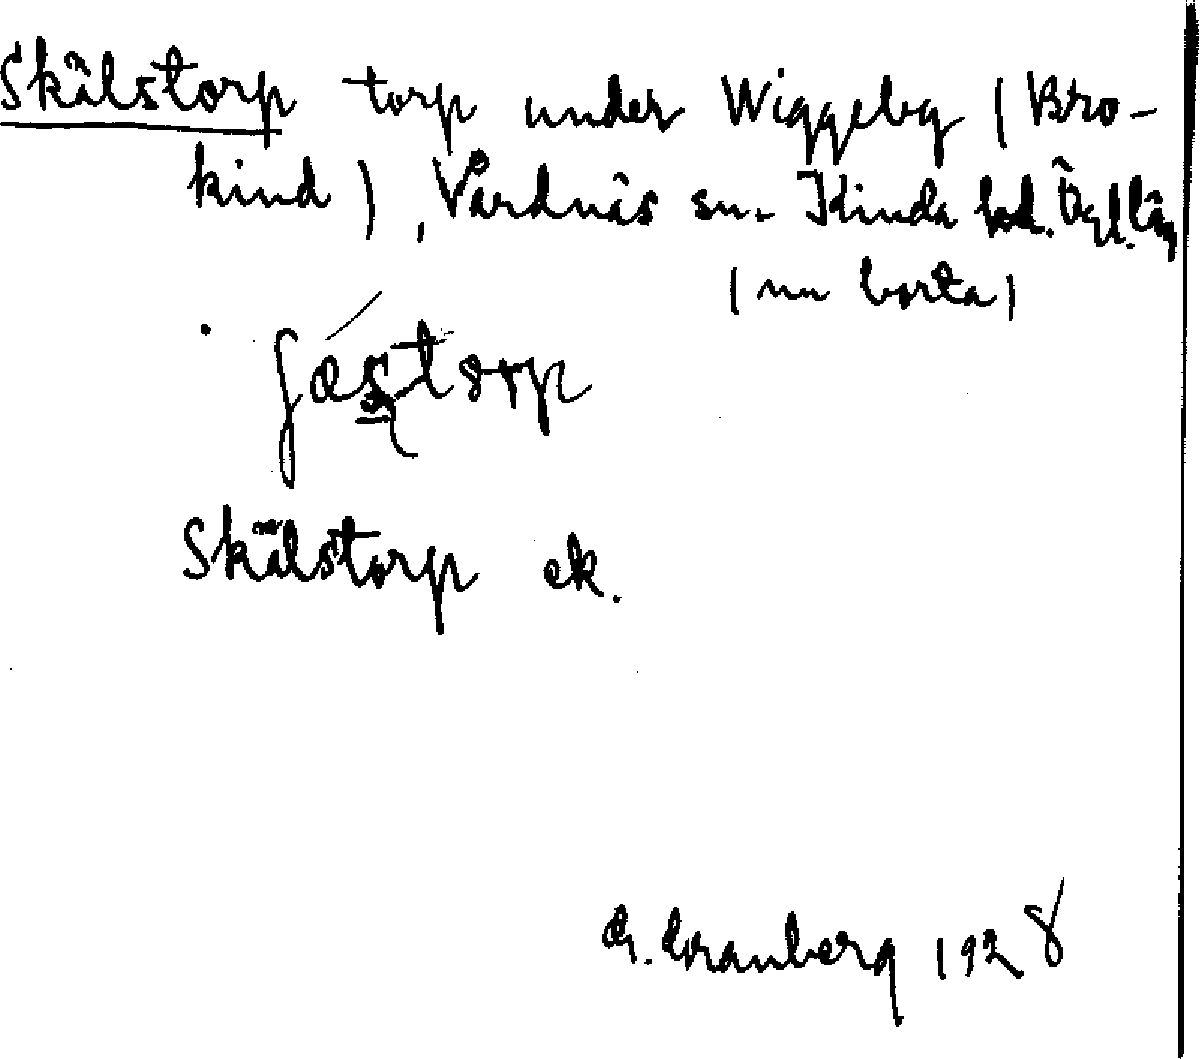 Skälstorp torp under Wiggeby (Bro-
kind), Vårdnäs sn. Kinda hd. Ögl. län
(nu borta)
Skälstorp ek.
G. Granberg 1928